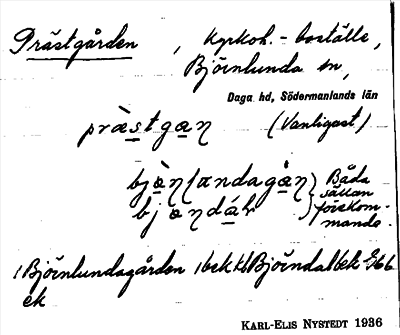 Prästgården, kyrkoh.-boställe,
Björnlunda sn,
Daga hd, Södermanlands län
præstgan (Vanligast)
bjøn(andagan Båda
bjøndár sällan
förekom-
mande.
1 Björnlundagården 1 bek kl Björndal bek E66
ek
KARL-ELIS NYSTEDT 1936